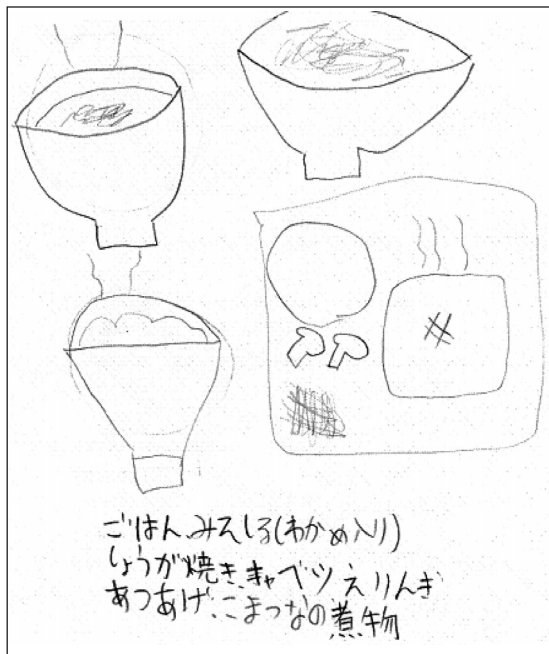 ごはん、みそしる(わかめ入り)
しょうが焼き、キャベツ えりんぎ
あつあげ、こまつなの煮物